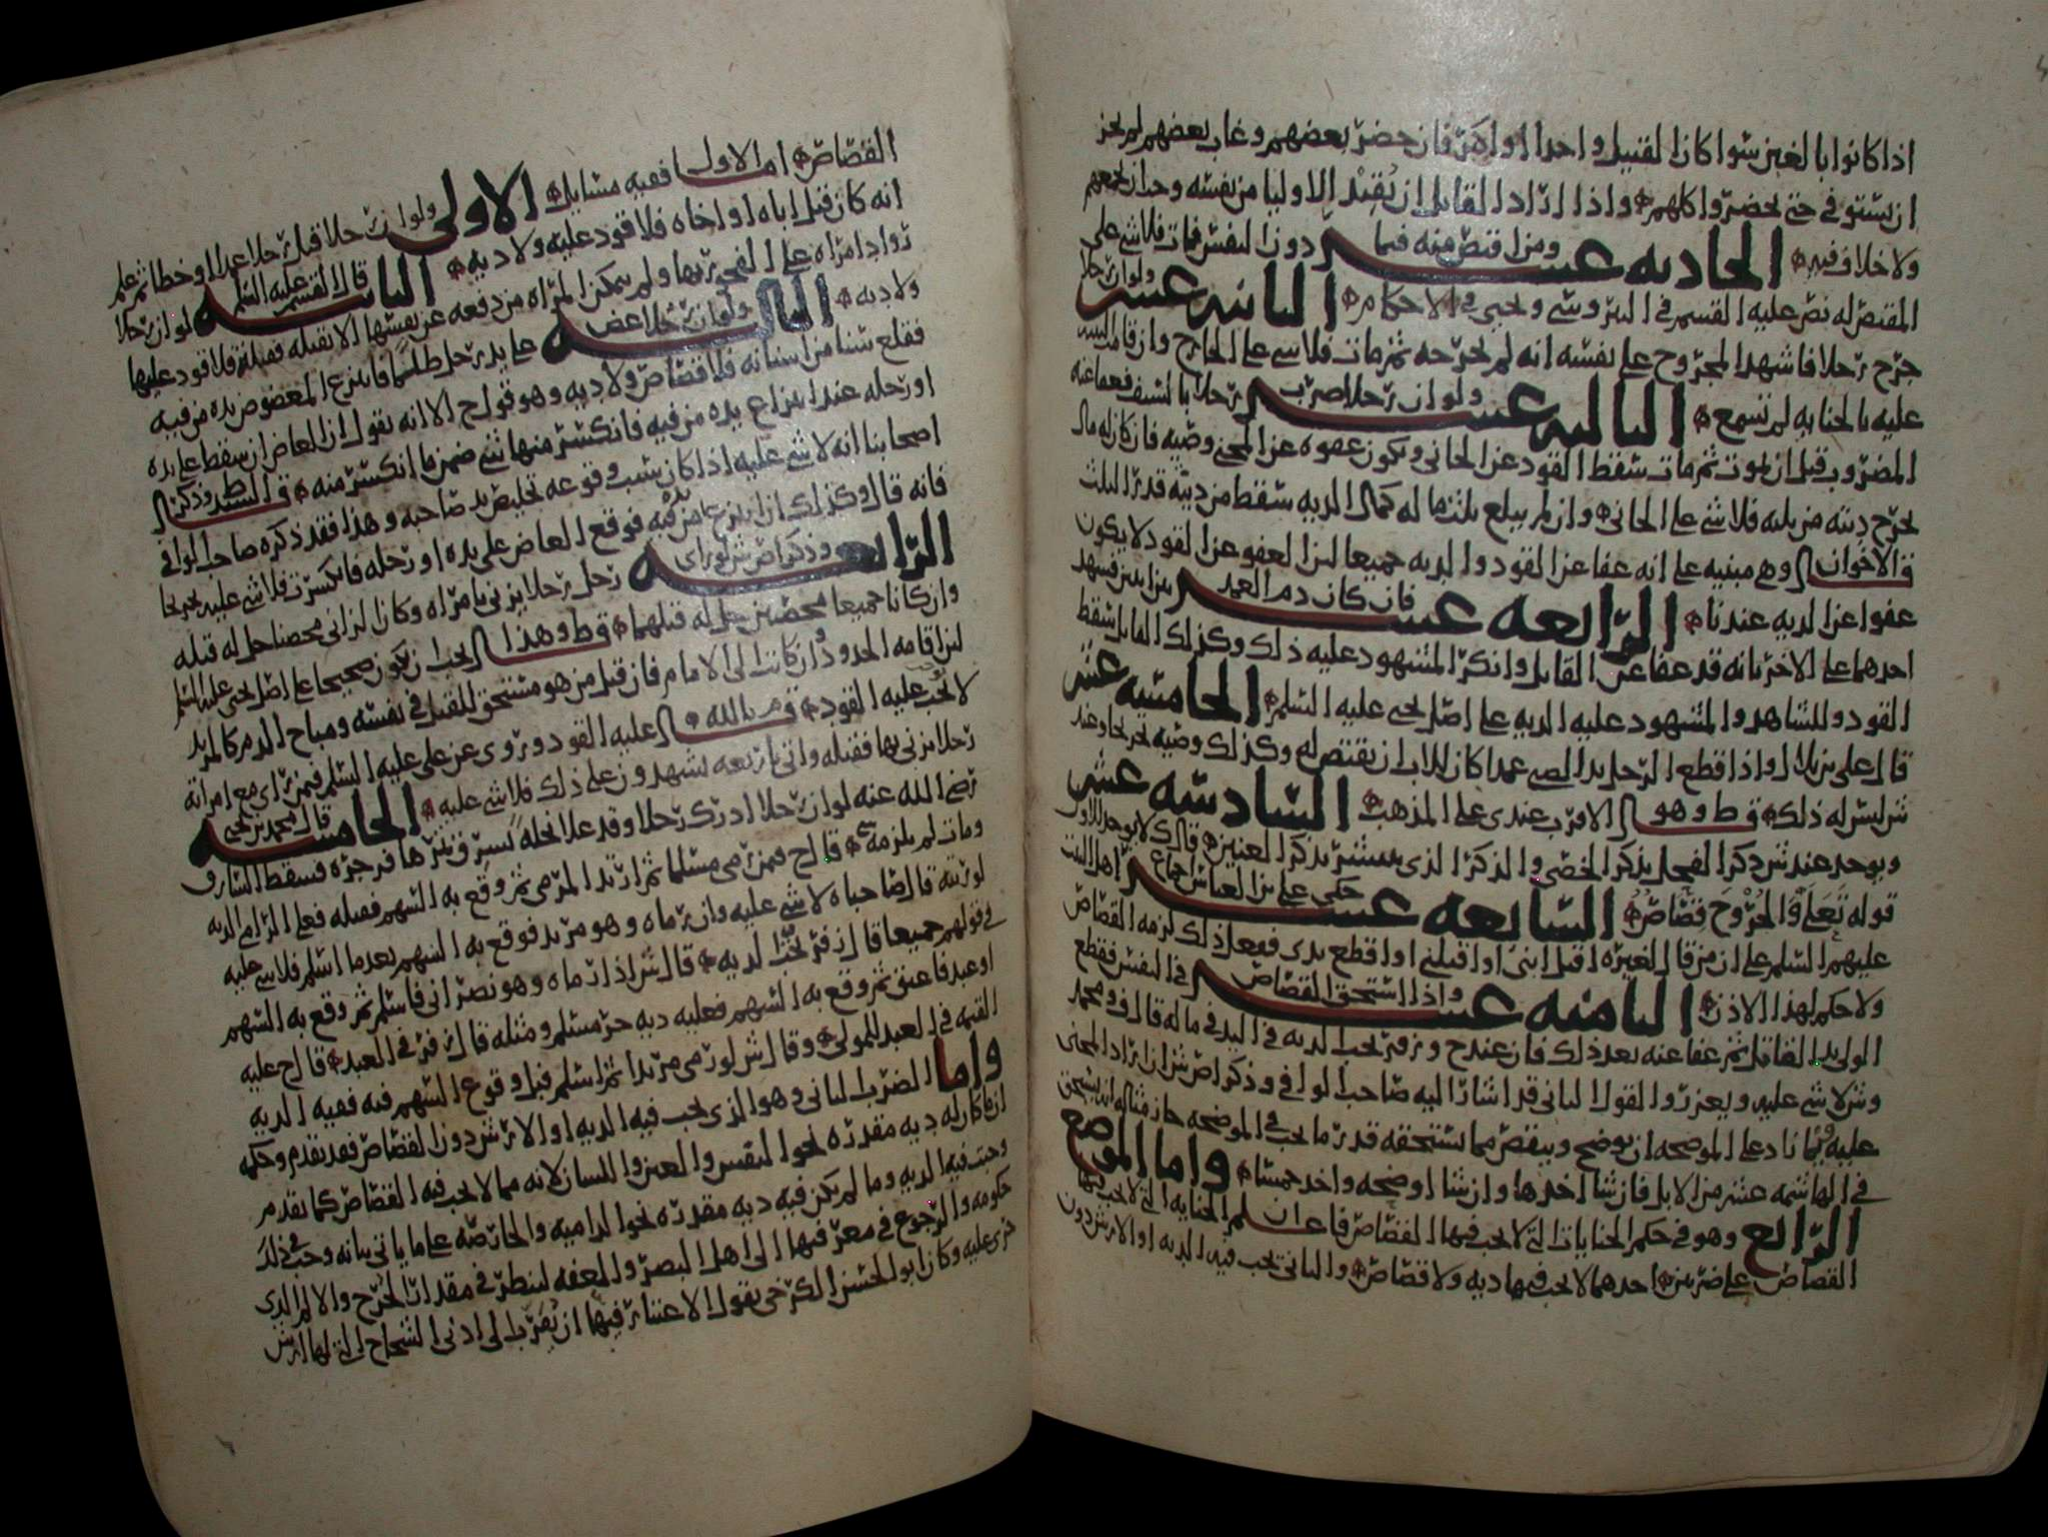 اذا كانوا بالغين سوا كان القتيل واحدا او اكثر فان حضر بعضهم وغاب بعضهم لم يجز
ان يستوفى حتى يحضروا كلهم واذا اراد القاتل ان يفتدي الاوليا من نفسه وجب ان يجمعهم
ولا خلاف فيه الحادية عشر ومن اقتص منه فيما دون النفس فمات فلا شي على
المقتص له نص عليه القسم في النيروسي ويحيى في الاحكام الثانية عشر ولو ان رجلا
جرح رجلا فاشهد المجروح على نفسه انه لم يجرحه ثم مات فلا شي على الجارح وان قامت البينة
عليه بالجناية لم تسمع الثالثة عشر ولو ان رجلا ضرب رجلا بالسيف فعفا عنه
المضروب قبل ان يموت ثم مات سقط القود عن الجاني ويكون عفوه عن المجني وصية فان كان له مال
يخرج ديته من ثلثه فلا شي على الجاني وان لم يبلغ ثلث ماله كمال الدية سقط من ديته قدر الثلث
ق الاخوان وهي مبنية على انه عفا عن القود والدية جميعا لان العفو عن القود لا يكون
عفوا عن الدية عندنا الرابعة عشر فان كان دم العمد بين اثنين فشهد
احدهما على الاخر بانه قد عفا عن القاتل وانكر المشهود عليه ذلك وكذلك القاتل سقط
القود وللشاهد والمشهود عليه الدية على اصل يحيى عليه السلم الخامسة عشر
قال علي بن بلال واذا قطع الرجل يد الصبي عمدا كان للاب ان يقتص له وكذلك وصيه تخريجا وعند
ش ليس له ذلك ق ط وهو الاقرب عندي على المذهب السادسة عشر
ويوخذ عند ش ذكر الفحل بذكر الخصي والذكر الذي ينتشر بذكر العنين قال ك لا يوخذ للاول
قوله تعالى والجروح قصاص السابعة عشر حكى علي بن العباس اجماع اهل البيت
عليهم السلم على ان من قال لغيره اقتل ابني او اقتلني او اقطع يدي ففعل ذلك لزمه القصاص
ولا حكم لهذا الاذن الثامنة عشر واذا استحق القصاص في النفس فقطع
الولي يد القاتل ثم عفا عنه بعد ذلك فان عند ح وزفر تجب الدية في اليد في ماله قال ف ومحمد
وش لا شي عليه ويعزر والقول الثاني قد اشار اليه صاحب الوافي وذكر اص ش ان اراد المجني
عليه فيما زاد على الموضحة ان يوضح وينقص مما يستحقه قدر ما يجب في الموضحة جاز مثاله ان يستحق
في الهاشمة عشر من الابل فان شا اخذها وان شا اوضحه واخذ خمسا واما الموضع
الرابع وهو في حكم الجنايات التي لا يجب فيها القصاص فاعلم ان الجناية التي لا يجب فيها
القصاص على ضربين احدهما لا يجب فيها دية ولا قصاص والثاني تجب فيه الدية او الارش دون
القصاص اما الاول ففيه مسايل الاولى ولو ان رجلا قتل رجلا عمدا او خطا ثم علم
انه كان قتل اباه او اخاه فلا قود عليه ولا دية الثانية قال القسم عليه السلم لو ان رجلا
راود امراة على الفجور بها ولم يمكن المراة من دفعه عن نفسها الا بقتله فقتلته فلا قود عليها
ولا دية الثالثة ولو ان رجلا عض على يد رجل ظلما فانتزع المعضوض يده من فيه
فقلع سنا من اسنانه فلا قصاص ولا دية وهو قول ح الا انه يقول ان العاض ان سقط على يده
او رجله عند انتزاع يده من فيه فانكسر منها شي ضمن ما انكسر منه ق السيد ط وذكر
اصحابنا انه لا شي عليه اذا كان سبب وقوعه تخليص يد صاحبه وهذا فقد ذكره صاحب الوافي
فانه قال وكذلك ان انتزع من فيه فوقع العاض على يده او رجله فانكسرت فلا شي عليه تخريجا
الرابعة وذكر اص ش لو راى رجل رجلا يزني بامراة وكان الزاني محصنا حل له قتله
وان كانا جميعا محصنين حل له قتلهما ق ط وهذا يجب ان يكون صحيحا على اصل يحيى عليه السلم
لان اقامة الحدود وان كانت الى الامام فان قتل من هو مستحق للقتل في نفسه ومباح الدم كالمرتد
لا يجب عليه القود ق م بالله عليه القود وروي عن علي عليه السلم فمن راى مع امراته
رجلا يزني بها فقتله واتى باربعة يشهدون على ذلك فلا شي عليه الخامسة قال محمد بن يحيى
رضي الله عنه لو ان رجلا ادرك رجلا وقد علا نخله يسرق ثمرها فزجره فسقط السارق
ومات لم يلزمه شي قال ح فمن رمى مسلما ثم ارتد المرمي ثم وقع به السهم فقتله فعلى الرامي الدية
لورثته قال صاحباه لا شي عليه وان رماه وهو مرتد فوقع به السهم بعد ما اسلم فلا شي عليه
في قولهم جميعا قال زفر تجب الدية قال ش اذا رماه وهو نصراني فاسلم ثم وقع به السهم
او عبد فاعتق ثم وقع به السهم فعليه دية حر مسلم ومثله قال زفر في العبد قال ح عليه
القيمة في العبد للمولى وقال ش لو رمى مرتدا ثم اسلم قبل وقوع السهم فيه ففيه الدية
واما الضرب الثاني وهو الذي يجب فيه الدية او الارش دون القصاص فقد تقدم وحكمه
ان ما كان له دية مقدرة نحو النفس والعين واللسان لانه مما لا يجب فيه القصاص كما تقدم
وجبت فيه الدية وما لم يكن فيه دية مقدرة نحو الدامية والحارصة على ما ياتي بيانه وجب في ذلك
حكومة والرجوع في معرفتها الى اهل البصر والمعرفة لينظر في مقدار الجرح والالم الذي
جرى عليه وكان ابو الحسن الكرخي يقول الاعتبار فيها ان يقرب الى ادنى الشجاج التي لها ارش